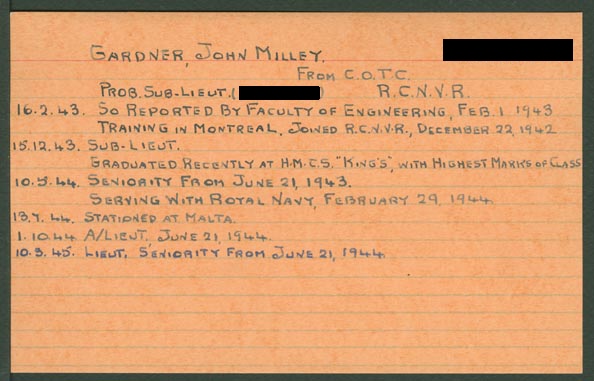 GARDNER, JOHN MILLEY.
FROM C.O.T.C.
PROB. SUB-LIEUT. ( ) R.C.N.V.R.
16.2.43. SO REPORTED BY FACULTY OF ENGINEERING, FEB. 1 1943
TRAINING IN MONTREAL, JOINED R.C.N.V.R., DECEMBER 22, 1942
15.12.43. SUB-LIEUT.
GRADUATED RECENTLY AT H.M.C.S. "KING'S", WITH HIGHEST MARKS OF CLASS
10.5.44. SENIORITY FROM JUNE 21, 1943.
SERVING WITH ROYAL NAVY, FEBRUARY 29, 1944.
13.7.44. STATIONED AT MALTA.
1.10.44 A/LIEUT. JUNE 21, 1944.
10.3.45. LIEUT. SENIORITY FROM JUNE 21, 1944.